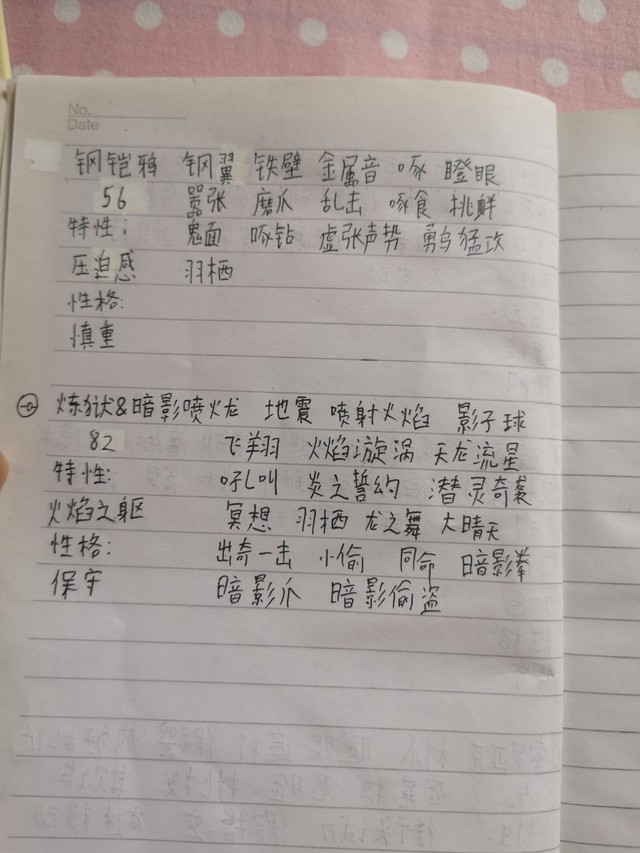 No.
Date
钢铠鸦 钢翼 铁壁 金属音 啄 瞪眼
56 嚣张 磨爪 乱击 啄食 挑衅
特性： 鬼面 啄钻 虚张声势 勇鸟猛攻
压迫感 羽栖
性格:
慎重
炼狱&暗影喷火龙 地震 喷射火焰 影子球
82 飞翔 火焰漩涡 天龙流星
特性: 吼叫 炎之誓约 潜灵奇袭
火焰之躯 冥想 羽栖 龙之舞 大晴天
性格: 出奇一击 小偷 同命 暗影拳
保守 暗影爪 暗影偷盗